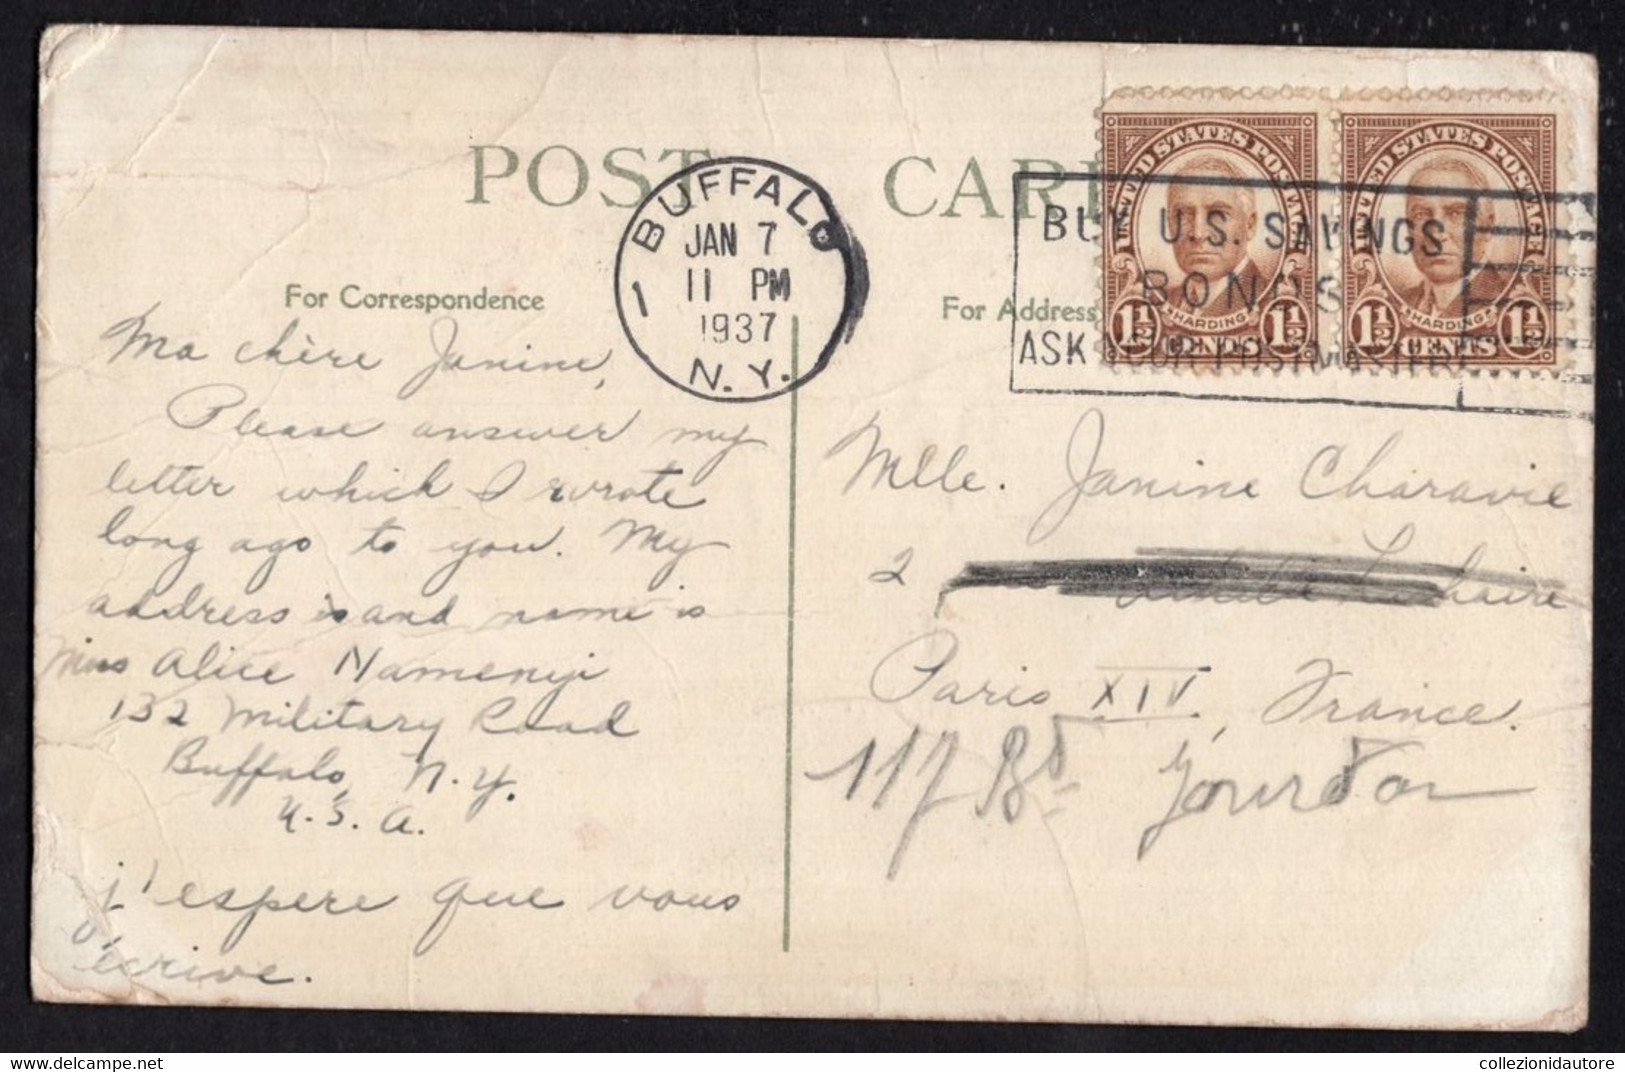 POST CARD
1 BUFFALO
JAN 7
11 PM
1937
N.Y.
BUY U.S. SAVINGS
BONDS
ASK YOUR POSTMASTER
UNITED STATES POSTAGE
HARDING
1½ CENTS 1½
UNITED STATES POSTAGE
HARDING
1½ CENTS 1½
For Correspondence
For Address
Ma chère Janine,
Please answer my
letter which I wrote
long ago to you. My
address is and name is
Miss Alice Namenyi
132 Military Road
Buffalo, N.Y.
U.S.A.
j'espere que vous
écrive.
Mlle. Janine Charavie
2
Paris XIV, France.
117 Bd Jourdan
collezionidautore